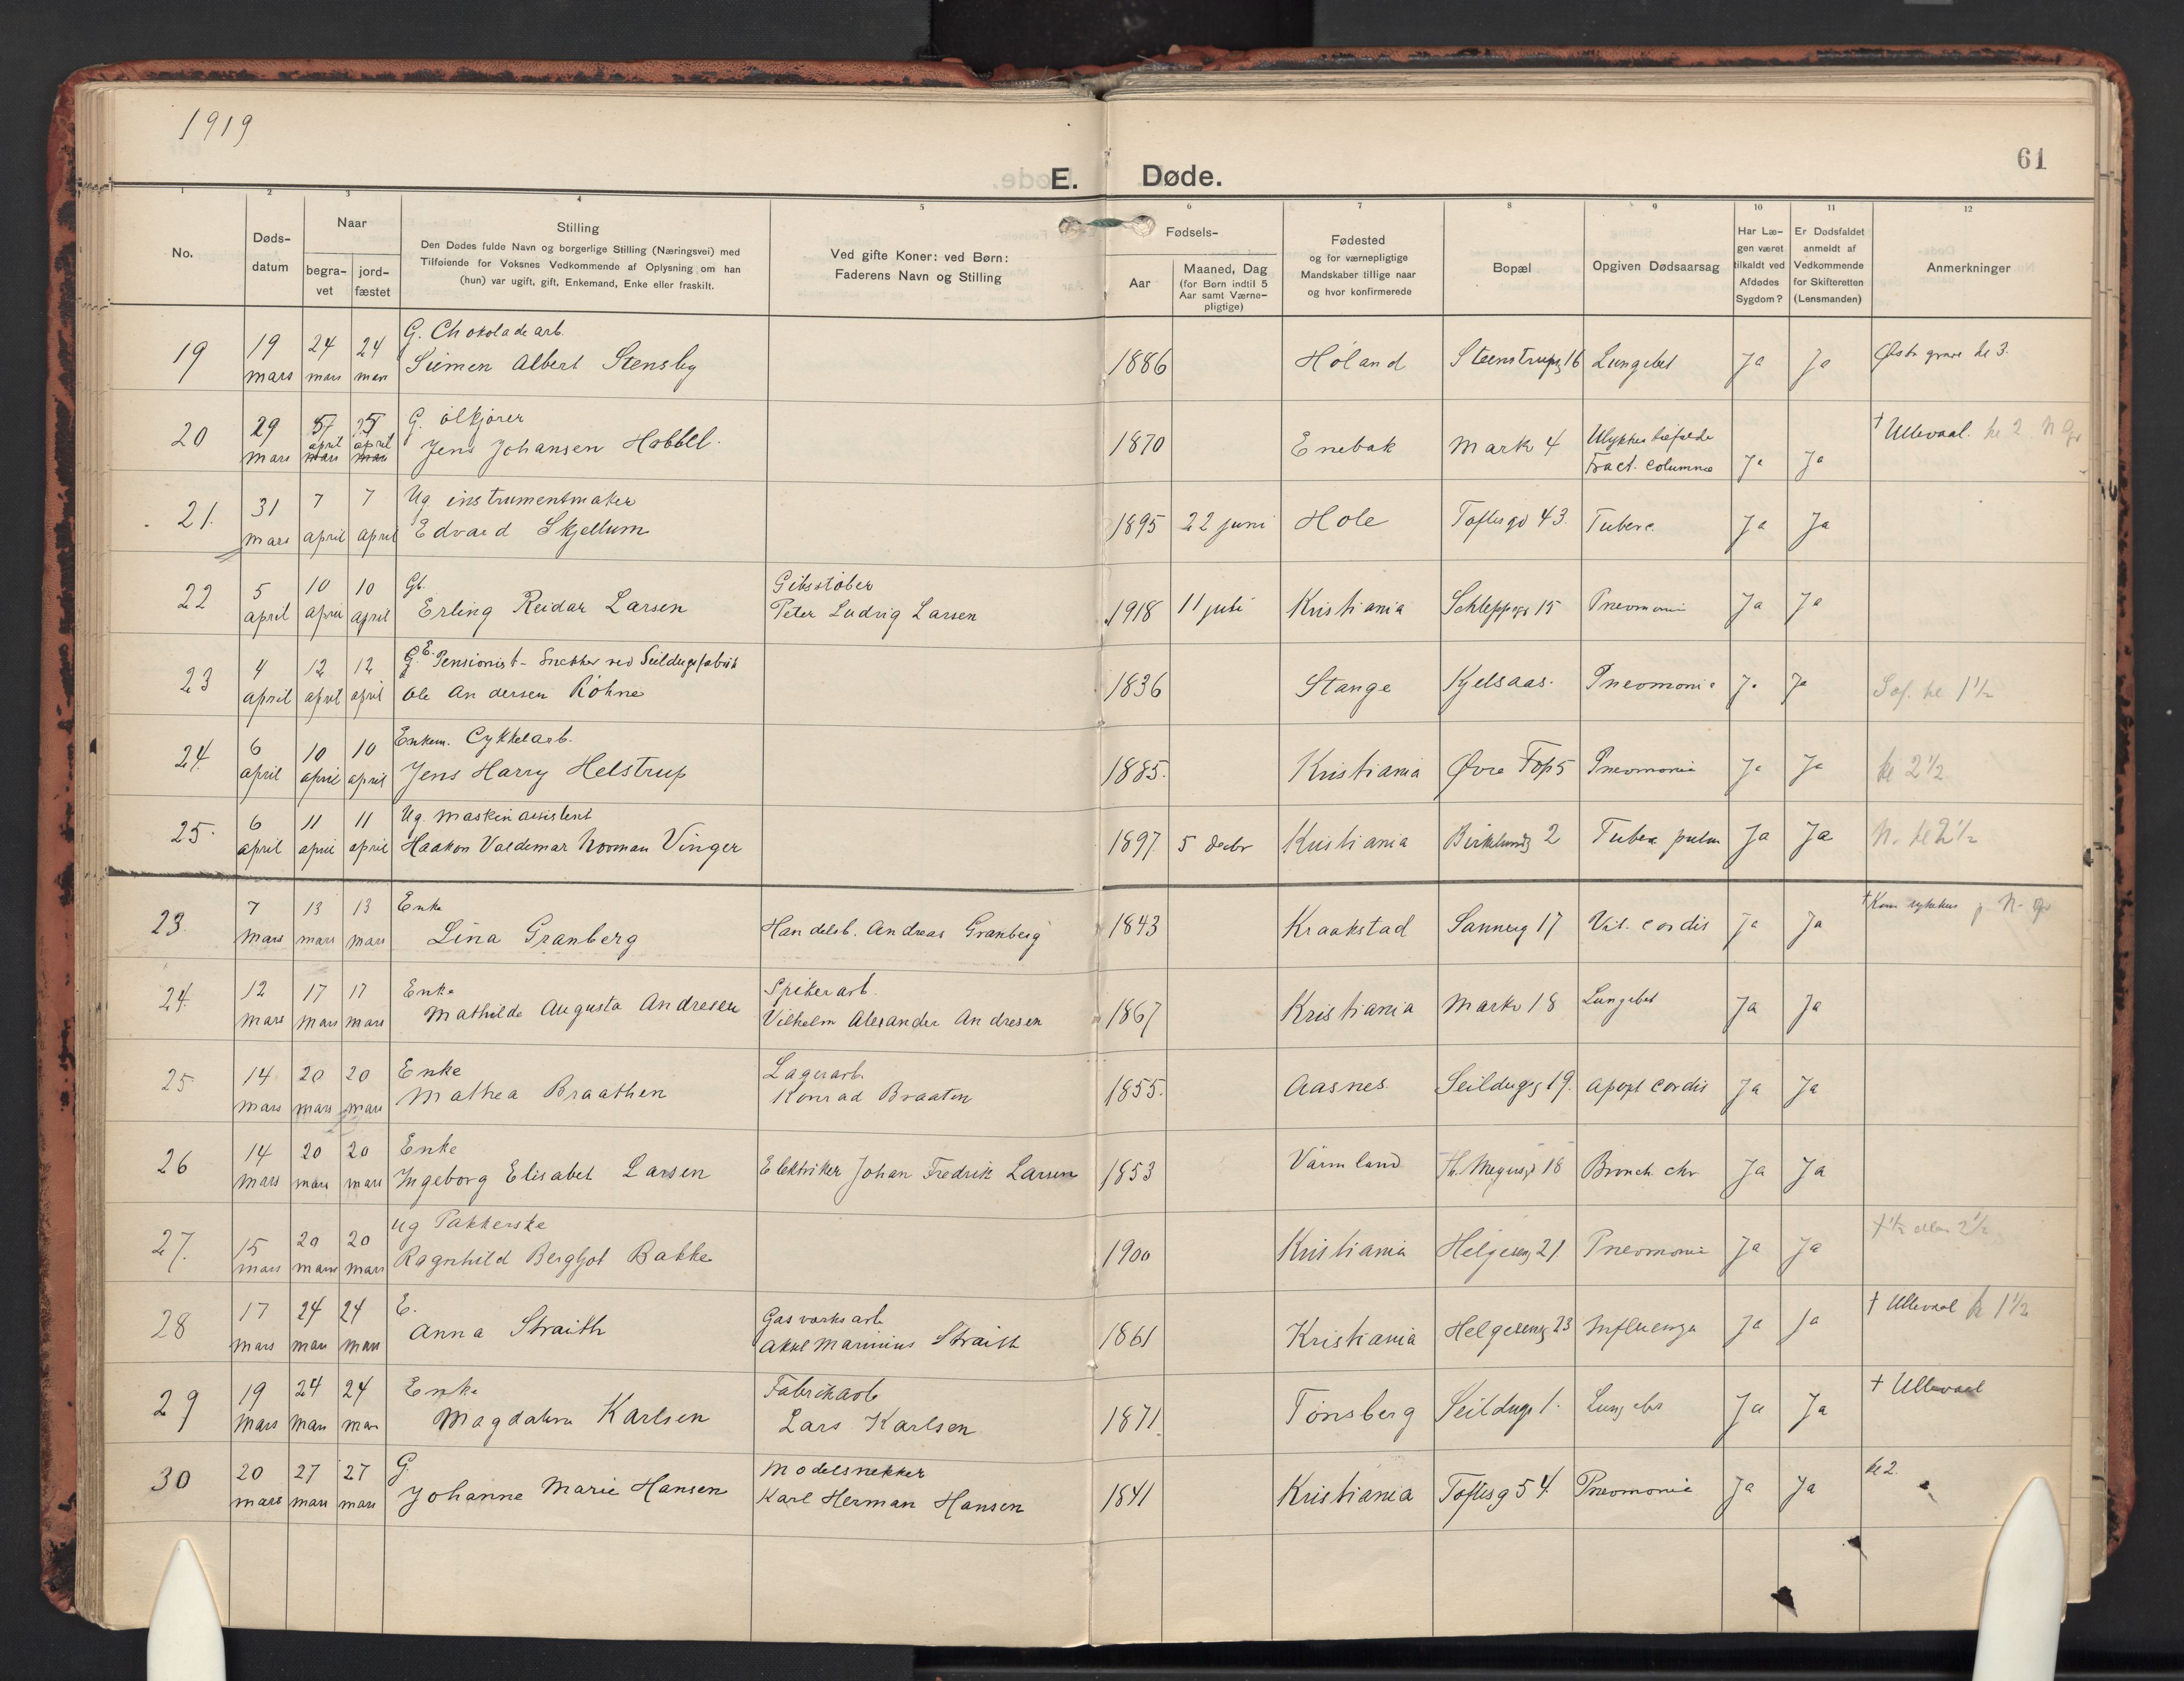 1919
61
E. Døde.
1 2 3 4 5 6 7 8 9 10 11 12
No.
Døds-
datum
Naar
begra-
vet
jord-
fæstet
Stilling
Den Dødes fulde Navn og borgerlige Stilling (Næringsvei) med
Tilføiende for Voksnes Vedkommende af Oplysning om han
(hun) var ugift, gift, Enkemand, Enke eller fraskilt.
Ved gifte Koner: ved Børn:
Faderens Navn og Stilling
Fødsels-
Aar
Maaned, Dag
(for Børn indtil 5
Aar samt Værne-
pligtige)
Fødested
og for værnepligtige
Mandskaber tillige naar
og hvor konfirmerede
Bopæl
Opgiven Dødsaarsag
Har Læ-
gen været
tilkaldt ved
Afdødes
Sygdom?
Er Dødsfaldet
anmeldt af
Vedkommende
for Skifteretten
(Lensmanden)
Anmerkninger
G. Chokoladearb.
19 19 24 24 Siemen Albert Stensby 1886 Høland Steenstrupg 16 Lungebet Ja Ja grave kl 3.
mars mars mars
G. ølkjører
20 29 5 5 Jens Johansen Hobbel. 1870 Enebak Markv 4 Ulykkestilfælde Ja Ja † Ullevaal. kl 2 N gr
mars april april Fract. columnæ
mars mars
Ug. instrumentmaker
21. 31 7 7 Edvard Skjellum 1895 22 juni Hole Toftesgd 43. Tuberc. Ja Ja
mars april april
Gb. Gibsstøber
22 5 10 10 Erling Reidar Larsen Peter Ludvig Larsen 1918 11 juli Kristiania Schleppegr 15 Pneomoni Ja Ja
april april april
G. E. Pensionist - Snekker ved Seildugsfabrik
23 4 12 12 Ole Andersen Røhne 1836 Stange Kjelsaas. Pneomoni Ja Ja Sof. kl 1½
april april april
Enkem. Cykkelarb.
24. 6 10 10 Jens Harry Helstrup 1885. Kristiania Øvre Fos 5 Pneomonie Ja Ja kl 2½
april april april
Ug. maskinassistent
25. 6 11 11 Haakon Valdemar Norman Vinger 1897 5 decbr Kristiania Birklundg 2 Tuberc pulm Ja Ja N. kl 2½
april april april
Enke
23. 7 13 13 Lina Granberg Handelsb. Andreas Granberg 1843 Kraakstad Sannerg 17 Vit. cordis Ja Ja † Kom sykehus N. gr
mars mars mars
Enke Spikerarb.
24. 12 17 17 Mathilde Augusta Andresen Vilhelm Alexander Andresen 1867 Kristiania Markv 18 Lungebet Ja Ja
mars mars mars
Enke Lagerarb.
25 14 20 20 Mathea Braathen Konrad Braaten 1855. Aasnes. Seildugsg 19. apopl cordis Ja Ja
mars mars mars
Enke
26 14 20 20 Ingeborg Elisabet Larsen Elektriker Johan Fredrik Larsen 1853 Värmland Th. Meyersgd 18 Bronch. chr Ja Ja
mars mars mars
ug Pakkerske
27. 15 20 20 Ragnhild Bergljot Bakke 1900 Kristiania Helgeseng 21. Pneomonie Ja Ja
mars mars mars
E. Gasverksarb
28 17 24 24 Anna Straith Aksel Marinius Straith 1861 Kristiania Helgeseng 23 Influenza Ja Ja † Ullevaal kl 1½
mars mars mars
Enke Fabrikarb
29 19 24 24 Magdalena Karlsen Lars Karlsen 1871. Tønsberg Seildugs 1. Lungebet Ja Ja † Ullevaal
mars mars mars
G. Modelsnekker
30 20 27 27 Johanne Marie Hansen Karl Herman Hansen 1841 Kristiania Toftesg 54 Pneomonie Ja Ja kl 2.
mars mars mars